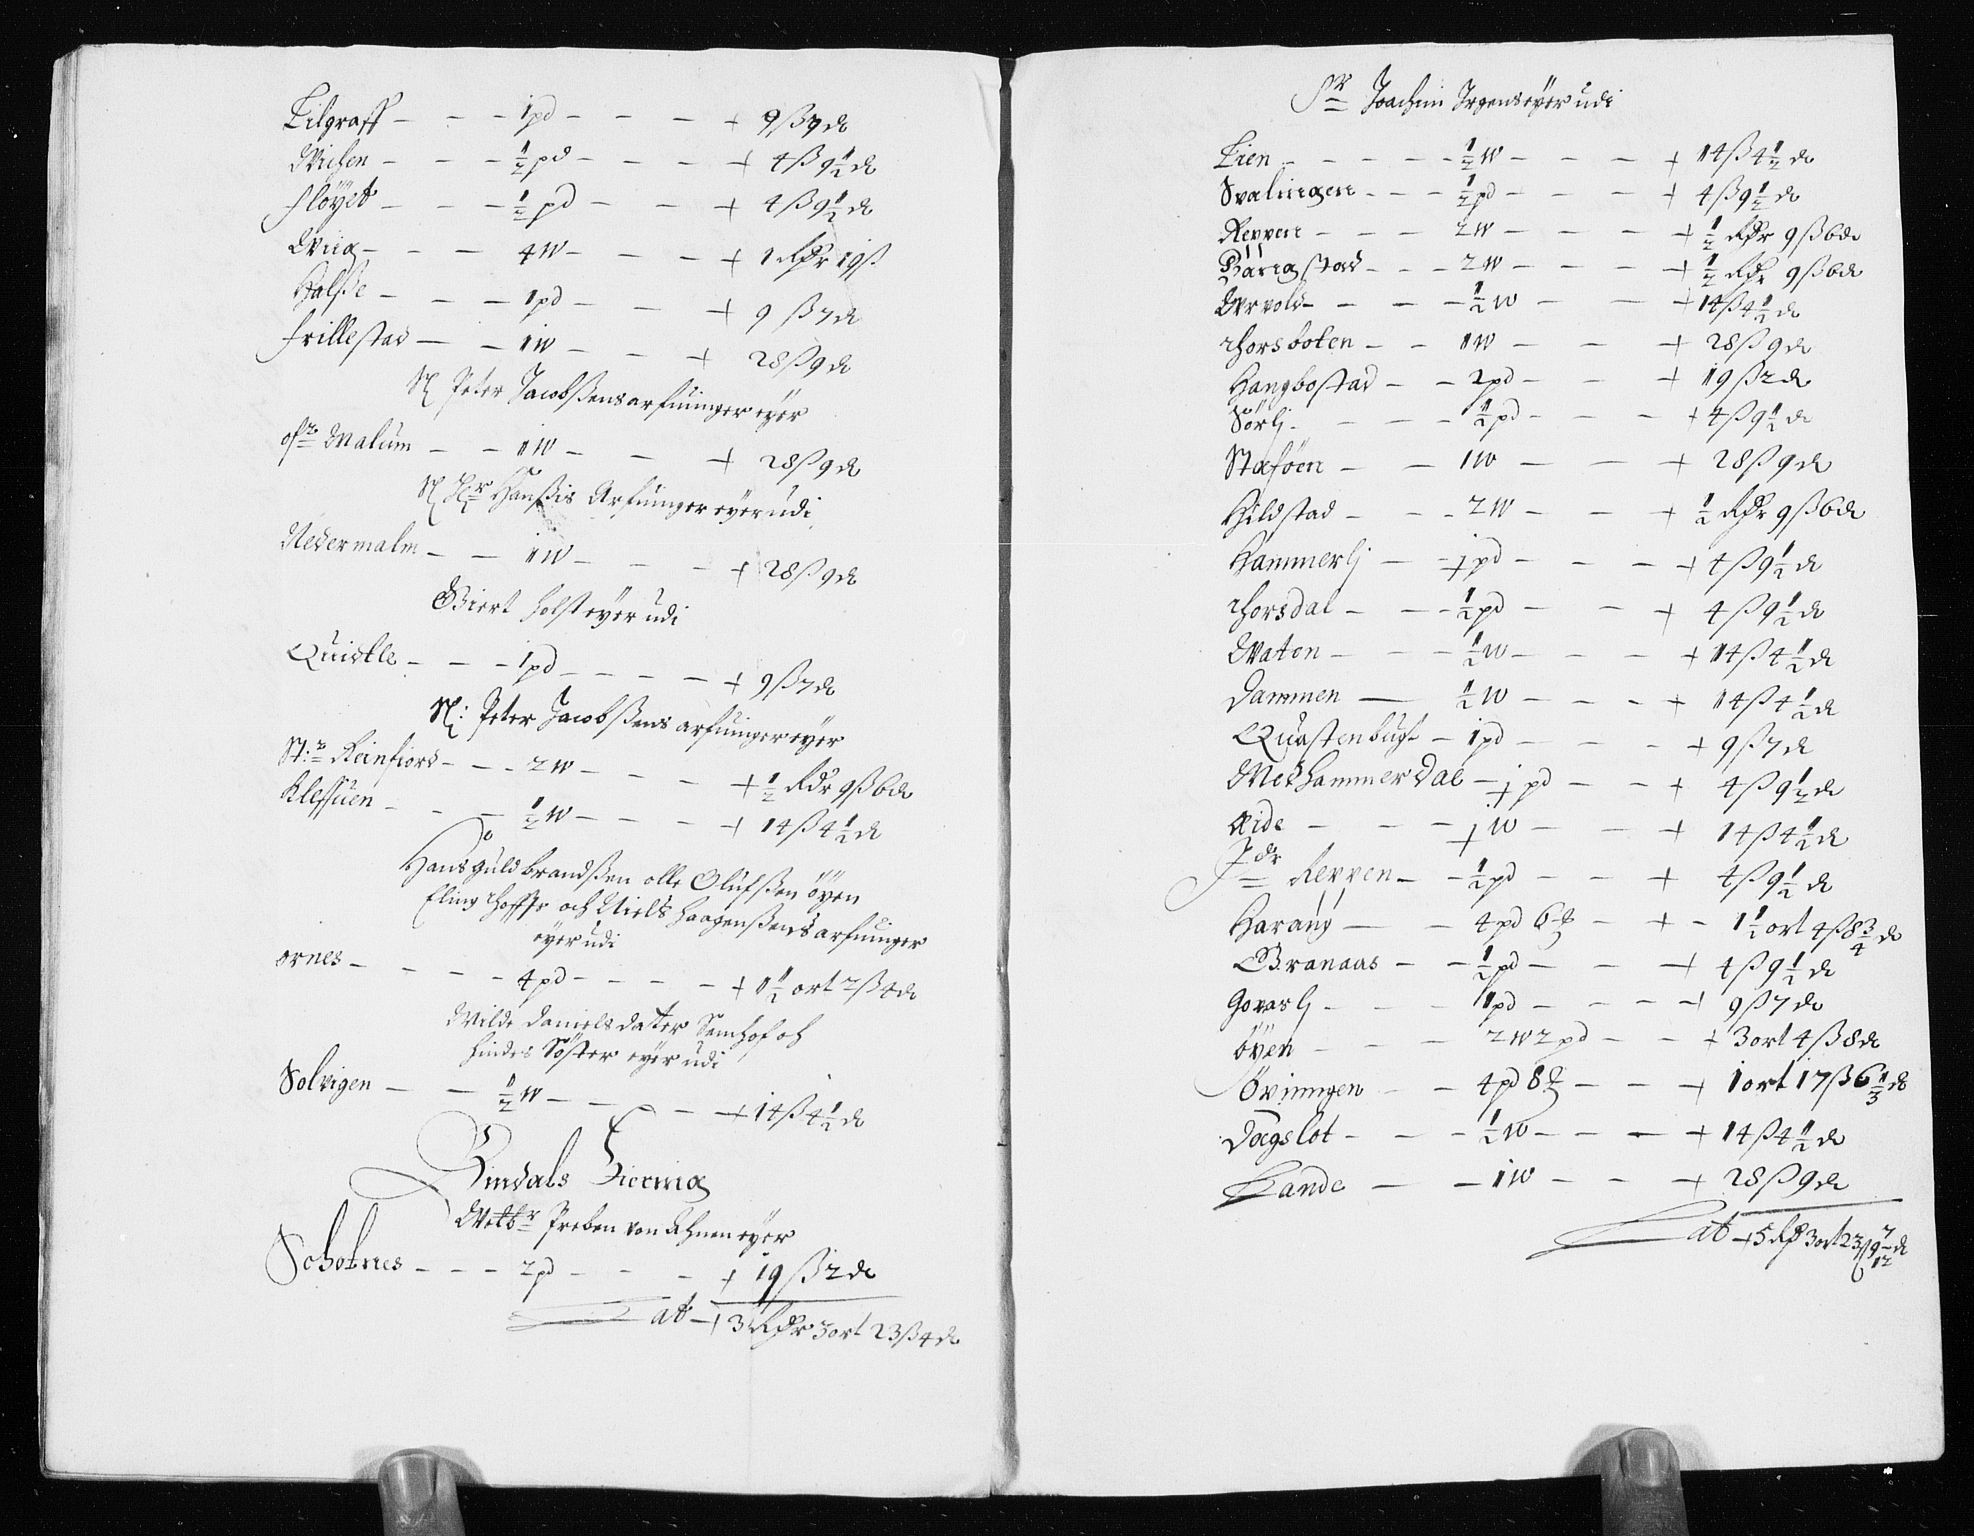 Lilgraff - - - 1 pd - - - + 9 ß 7 d
Wichen - - - ½ pd - - - + 4 ß 9½ d
fløyet - - - ½ pd - - - + 4 ß 9½ d
Wiig - - - 4 W - - - + 1 Rdr 19 ß
Halsße - - - 1 pd - - - + 9 ß 7 d
frillestad - - 1 W - - - + 28 ß 9 d
Sl Peter Jacobßens arfuinger eyer
of Malum - - 1 W - - - + 28 ß 9 d
Sl Hr Hanßis Arfuinger eyer udi
Nedermalm - - 1 W - - - + 28 ß 9 d
Giert holst eyer udi
Quistle - - - 1 pd - - - - + 9 ß 7 d
Sl: Peter Jacobßens arfuinger eyer
St: Reinfiord - - - 2 W - - - + ½ Rdr 9 ß 6 d
Kleffuen - - - ½ W - - - + 14 ß 4½ d
Hans guldbrandßen olle Olufßen öyen
Eling hoffs och Niels haagenßens arfuinger
eyer udi
ornes - - - - 4 pd - - - - + 1½ ort 2 ß 4 d
Wilde Daniels datter Semhof och
hindes Söster eyer udi
Solvigen - - ½ W - - - - + 14 ß 4½ d
Bindals Fierring
Welb: Preben von Ahnen eyer
Soholmes - - - 2 pd - - - + 19 ß 2 d
at + 3 Rdr 3 ort 23 ß 4 d
Sr Joachim Irgens eyer udi
Lien - - - - - ½ W - - - + 14 ß 4½ d
Svalingen - - - ½ pd - - - + 4 ß 9½ d
Reppen - - - 2 W - - - - + ½ Rdr 9 ß 6 d
Böringstad - - - 2 W - - - - + ½ Rdr 9 ß 6 d
Urvold - - - - ½ W - - - + 14 ß 4½ d
thorsboten - - 1 W - - - + 28 ß 9 d
Hangbostad - - 2 pd - - - + 19 ß 2 d
Sörlj - - - - ½ pd - - - + 4 ß 9½ d
Staföen - - 1 W - - - + 28 ß 9 d
Hildstad - - - 2 W - - - + ½ Rdr 9 ß 6 d
Hammerlj - - ½ pd - - - + 4 ß 9½ d
thorsdal - - - ½ pd - - - + 4 ß 9½ d
Waten - - - ½ W - - - - + 14 ß 4½ d
Dammen - ½ W - - - + 14 ß 4½ d
Quastenbugt - 1 pd - - - - + 9 ß 7 d
Medhammerdal - ½ pd - - - + 4 ß 9½ d
Eide - - - - ½ W - - - + 14 ß 4½ d
Jdr Reppen - - ½ pd - - - + 4 ß 9½ d
Harang - - 4 pd 6 - + - 1½ ort 4 ß 8¾ d
Granaas - - ½ pd - - - + 4 ß 9½ d
Goraslj - - - 1 pd - - - - + 9 ß 7 d
öyen - - - - 2 W 2 pd - - + 3 ort 4 ß 8 d
Söviningen - - 4 pd 8 - - - + 1 ort 17 ß 6⅓ d
Dögslot - - - ½ W - - - + 14 ß 4½ d
Lande - - 1 W - - - + 28 ß 9 d
at + 5 Rdr 3 ort 23 ß 9 7/12 d